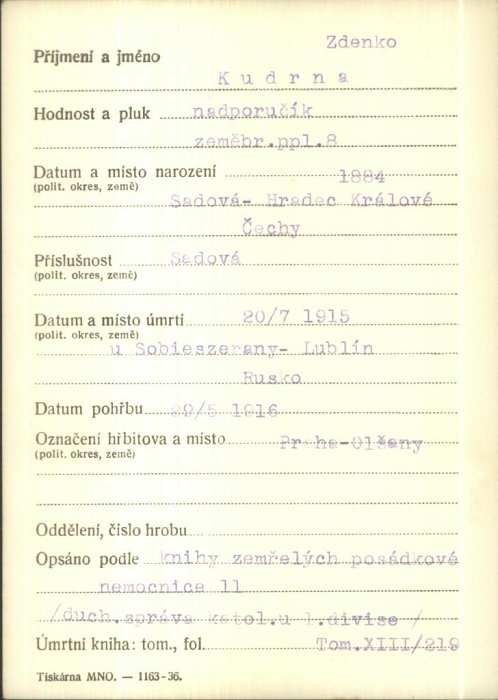 Zdenko
Příjmení a jméno
Kudrna
Hodnost a pluk nadporučík
zeměbr.ppl.8
Datum a místo narození 1884
(polit. okres, země)
Sadová- Hradec Králové
Čechy
Příslušnost Sadová
(polit. okres, země)
Datum a místo úmrtí 20/7 1915
(polit. okres, země)
u Sobieszerany- Lublín
Rusko
Datum pohřbu 29/5 1916
Označení hřbitova a místo Praha-Olšany
(polit. okres, země)
Oddělení, číslo hrobu
Opsáno podle knihy zemřelých posádkové
nemocnice 11
/duch.správa katol.u 1.divise /
Úmrtní kniha: tom., fol. Tom.XIII/219
Tiskárna MNO. — 1163-36.